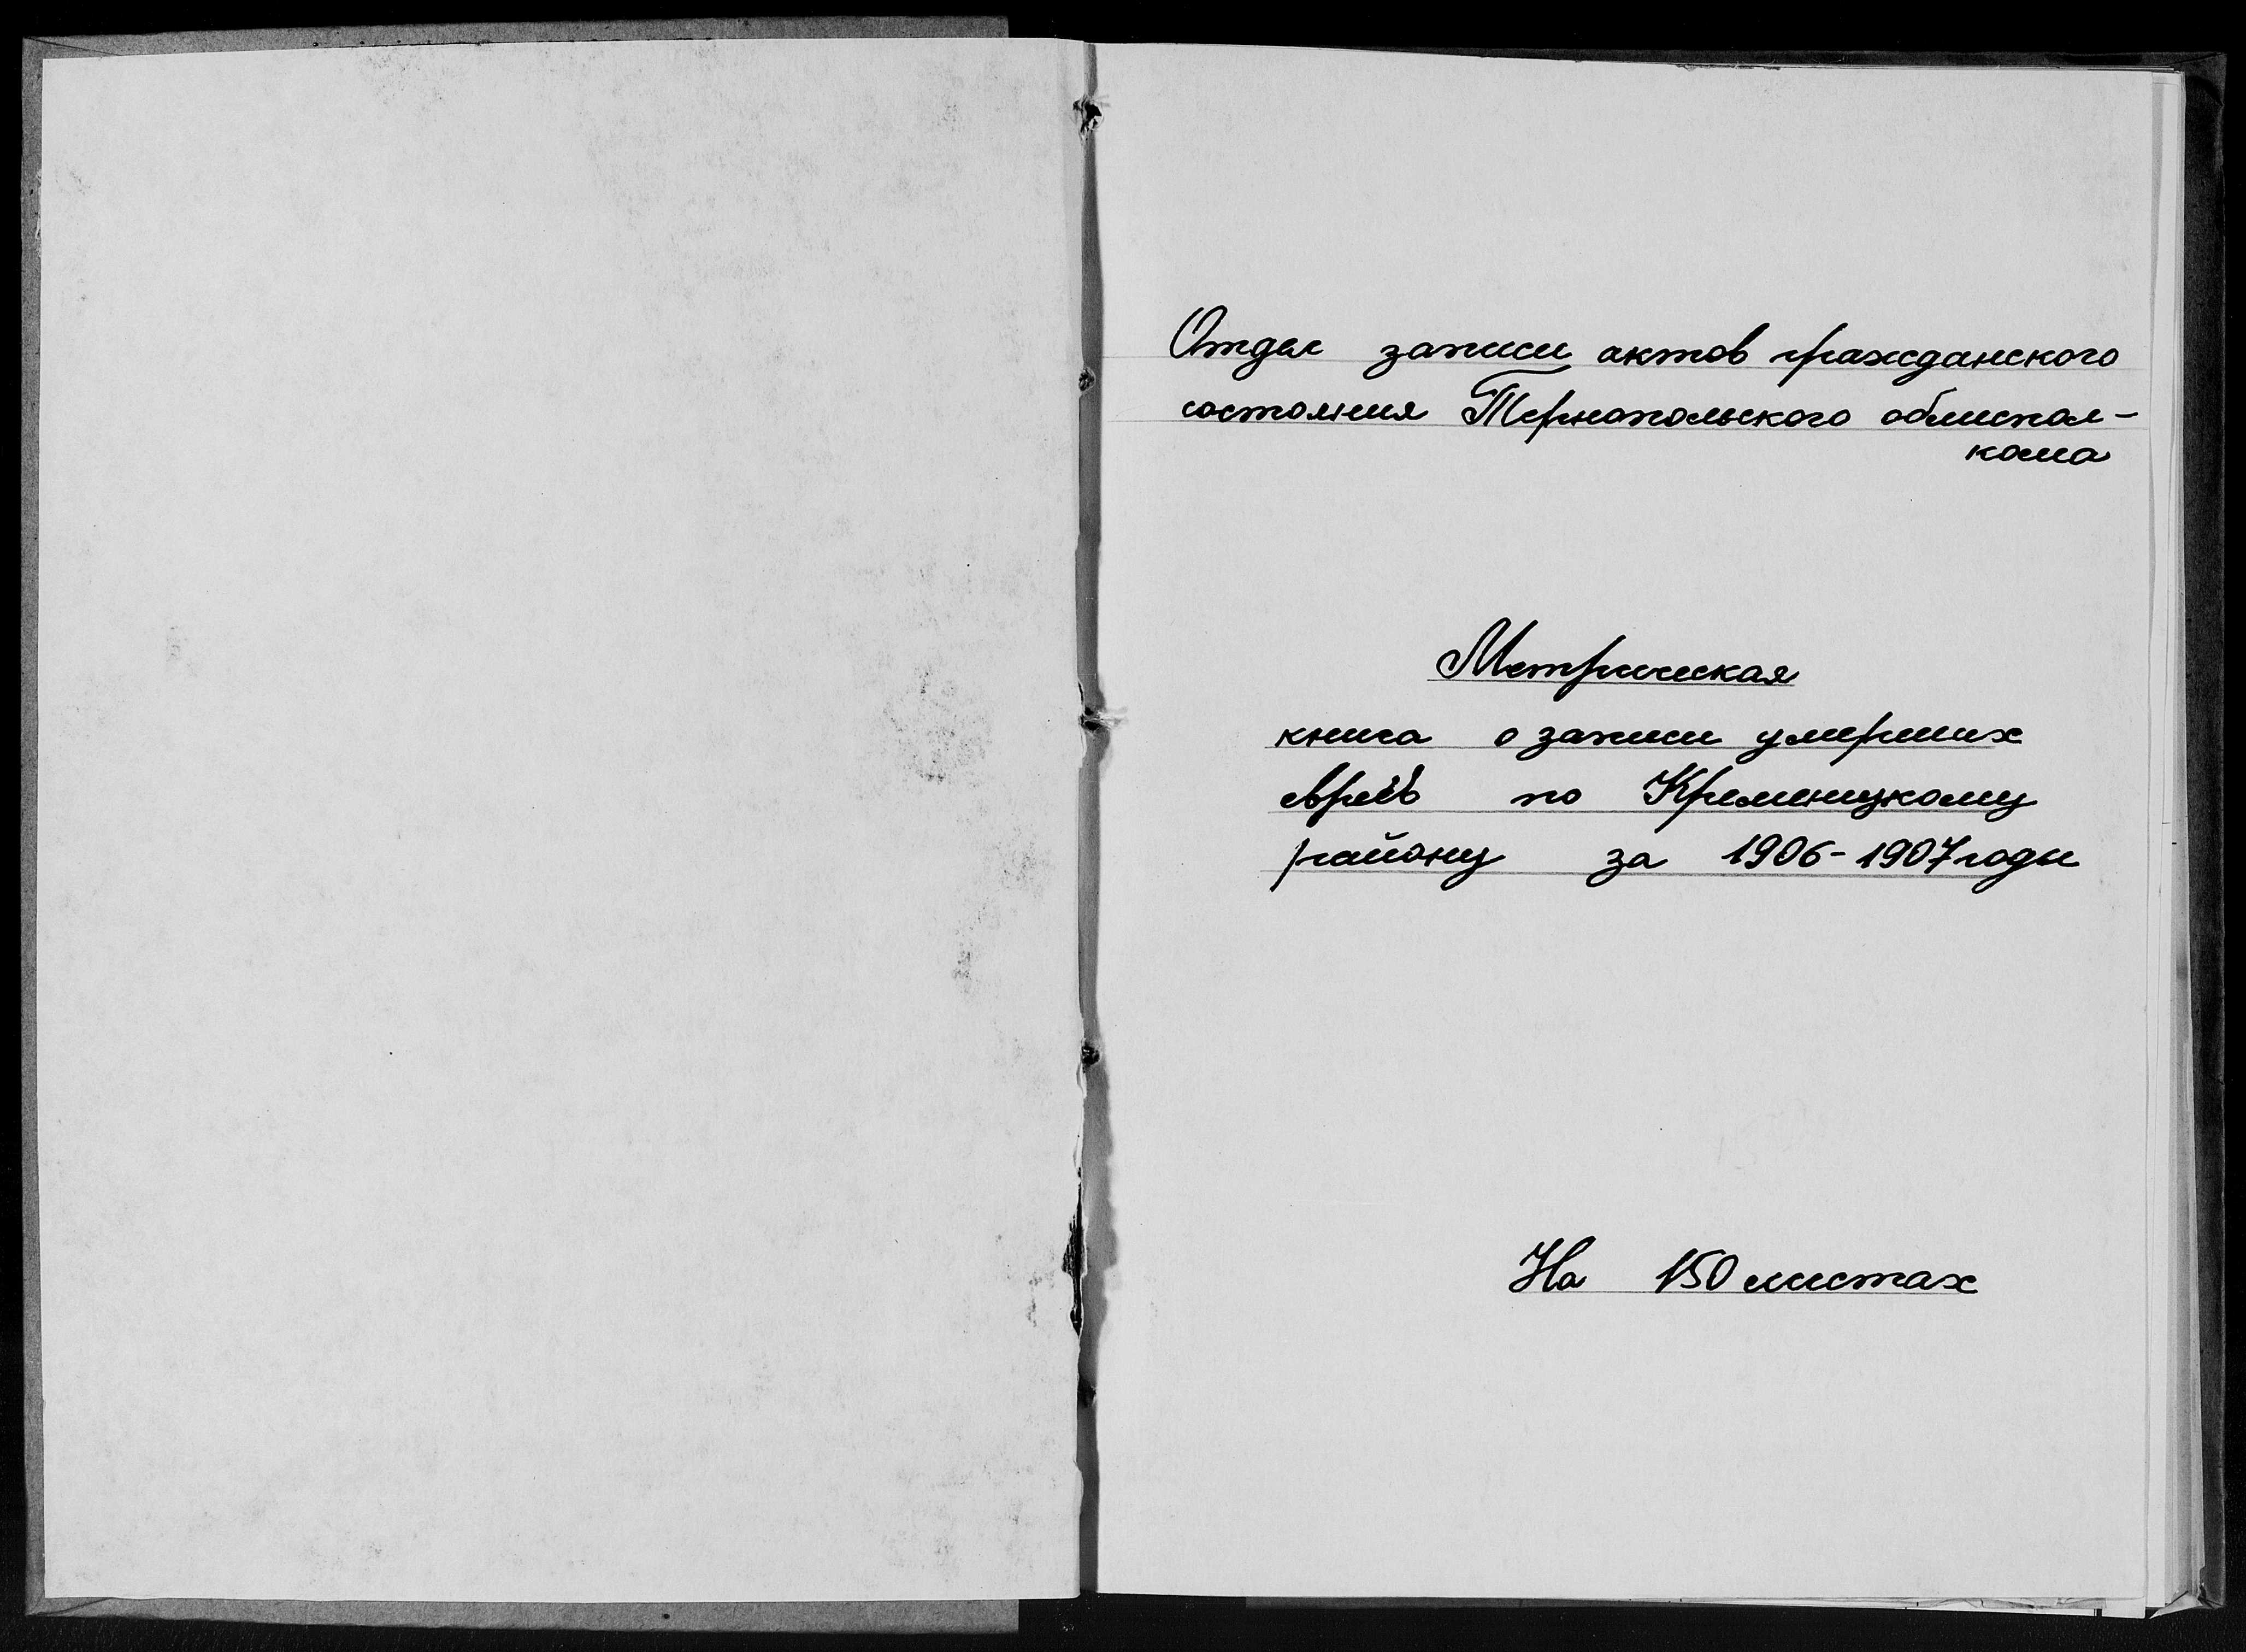 Отдел записи актов гражданского
состояния Тернопольского облиспол-
кома
Метрическая
книга о записи умерших
евреев по Кременецкому
району за 1906-1907 годы
На 150 листах